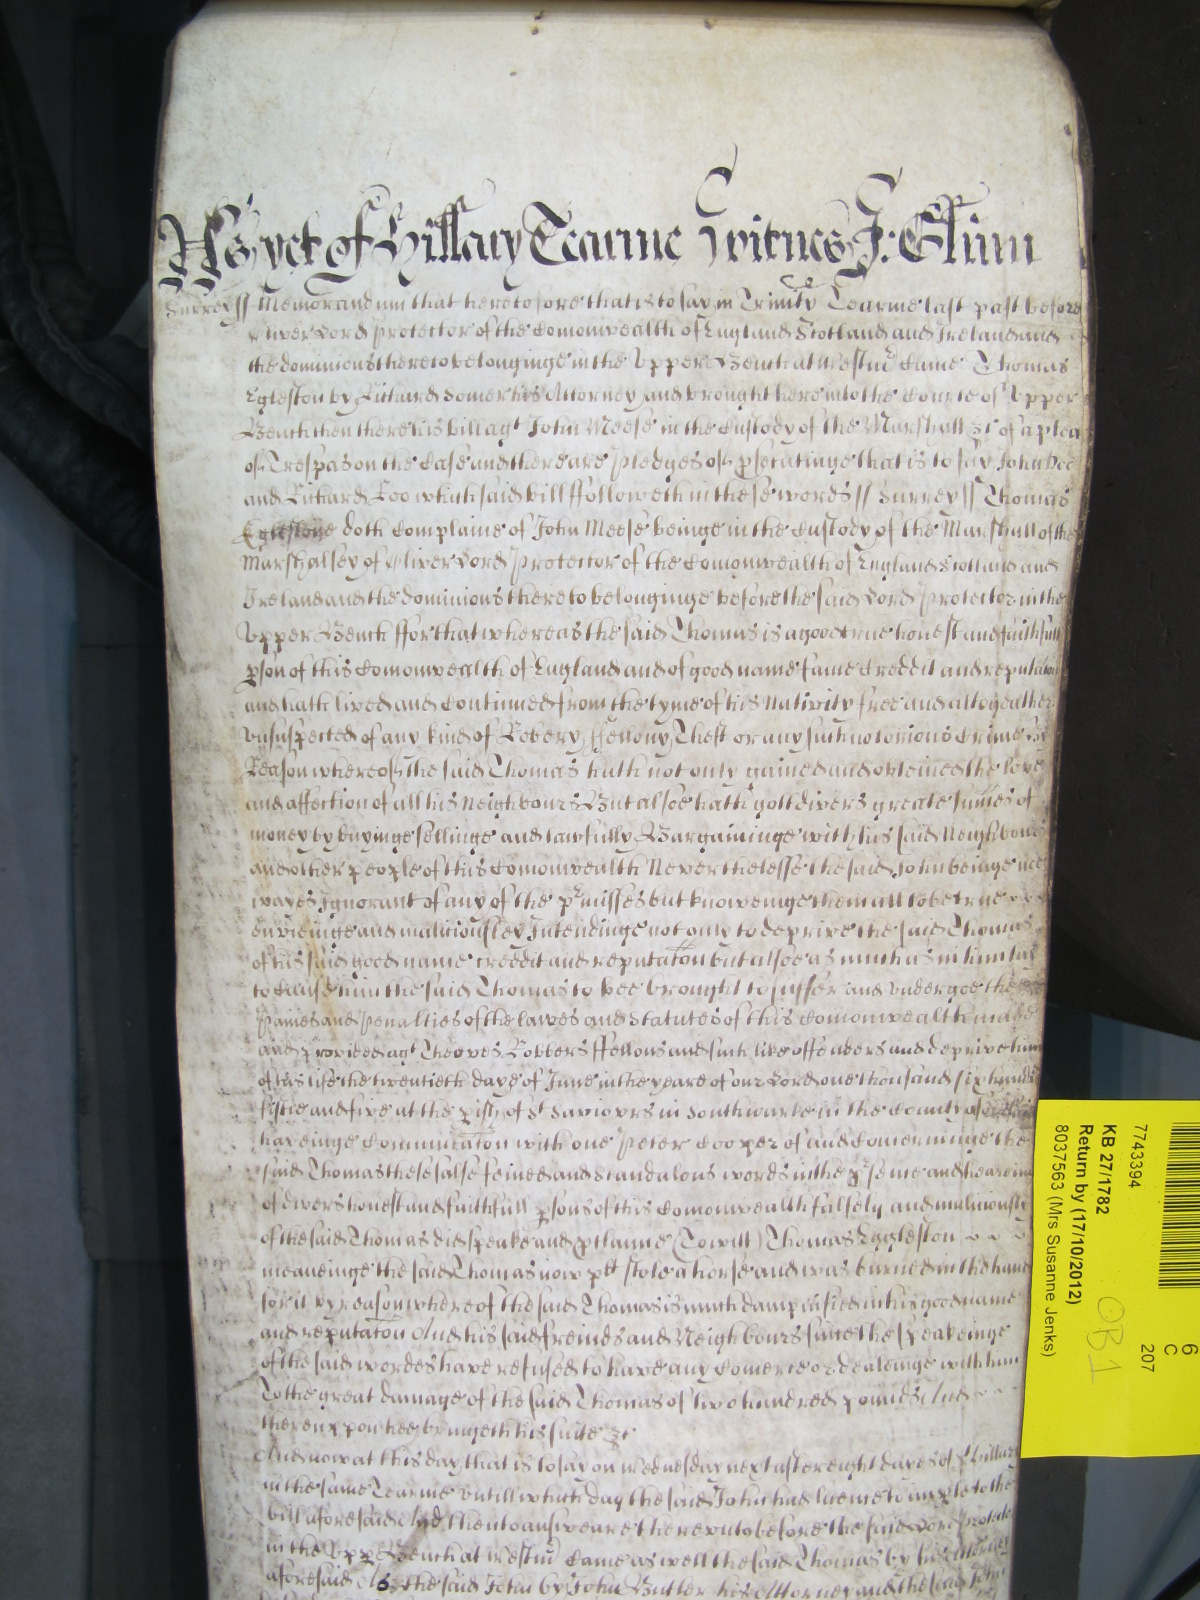 As yet of Hillary Tearme Witnes J: Glinn
Surrey ss Memorandum that heretofore that is to say in Trinity Tearme last past before
Oliver Lord Protector of the Comonwealth of England Scotland and Ireland and
the dominions thereto belonginge in the Upper Bench at Westmr Came Thomas
Egleston by Richard Somer his Attorney and brought here into the Courte of Upper
Bench then there his bill agt John Meese in the Custody of the Marshall &c of a plea
of Trespas on the Case and there are pledges of psecutinge that is to say John Doe
and Richard Roo which said bill ffolloweth in these words ss Surrey ss Thomas
Eglestone doth Complaine of John Meese beinge in the Custody of the Marshall of the
Marshalsey of Oliver Lord Protector of the Comonwealth of England Scotland and
Ireland and the dominions thereto belonginge before the said Lord Protector in the
Upper Bench ffor that whereas the said Thomas is a good true honest and faithfull
pson of this Comonwealth of England and of good name fame Creddit and reputation
and hath lived and Continued from the tyme of his Nativity free and altogeather
unsuspected of any kind of Robery ffellony Theft or any such notorious Crime By
Reason whereof the said Thomas hath not only gained and obteined the love
and affection of all his Neighbours But alsoe hath gott divers greate sumes of
money by buyinge sellinge and lawfully Bargaininge with his said Neighbours
and other people of this Comonwealth Neverthelesse the said John beinge noe
wayes Ignorant of any of the pmisses but knoweinge them all to be true
envieinge and maliciousley Intendinge not only to deprive the said Thomas
of his said good name creddit and reputaton but alsoe as much as in him lay
to Cause him the said Thomas to bee brought to suffer and undergoe the
Paines and Penalties of the lawes and Statutes of this Comonwealth made
and provided agt Theeves Robbers ffellons and such like offenders and deprive him
of his life the twentieth daye of June in the yeare of our Lord one thousand six hundred
fiftie and five at the pish of St Saviours in Southwarke in the County of
haveinge Communicaton with one Peter Cooper of and Concerninge the
said Thomas these false feined and scandalous words in the psence and heareinge
of divers honest and faithfull psons of this Comonwealth falsely and maliciously
of the said Thomas did speake and ptlaime (To witt) Thomas Eggleston
meaneinge the said Thomas now plt stole a horse and was burned in the hand
for it by reason whereof the said Thomas is much dampnified in his good name
and reputaton And his said freinds and Neighbours since the speakeinge
of the said wordes have refused to have any Comerce or dealeinge with him
To the great damage of the said Thomas of two hundred pounds And
thereuppon hee bringeth his suite &c
And now at this day that is to say on Wednesday next after eight dayes of St Hillary
in the same Tearme untill which day the said John had licence to imple to the
bill aforesaid And then to answeare thereunto before the said Lord Protector
in the Upp Bench at Westmr Came as well the said Thomas by his Attorney
aforesaid As the said John by John Butler his Attorney and the said John
7743394
KB 27/1782
Return by (17/10/2012)
8037563 (Mrs Susanne Jenks)
OB1
6
C
207